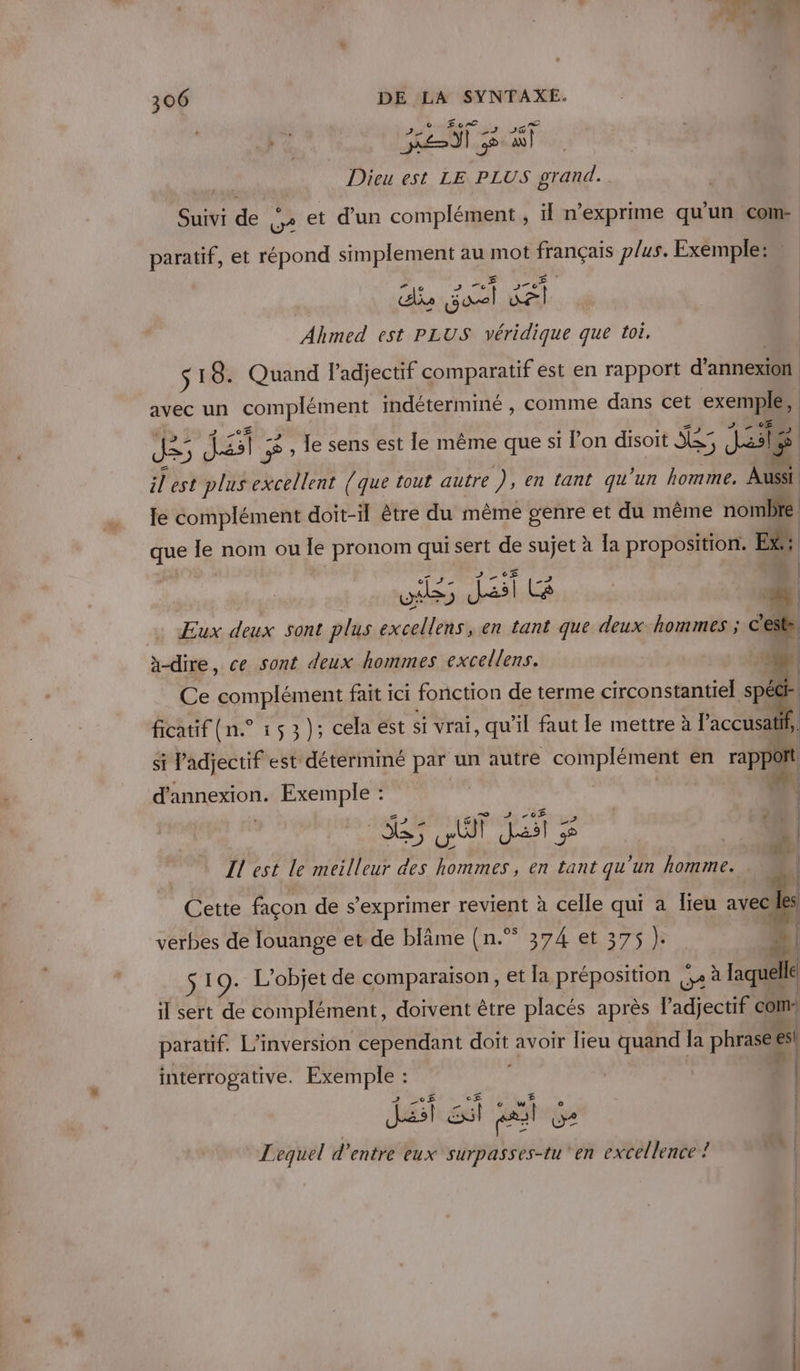 306 DE LA SYNTAXE.
اَللّٰهُ هُوَ ٱلْأَكْبَرُ
Dieu est LE PLUS grand.
Suivi de مِنْ et d'un complément, il n'exprime qu'un com-
paratif, et répond simplement au mot français plus. Exemple:
أَحْمَدُ أَصْدَقُ مِنْكَ
Ahmed est PLUS véridique que toi.
518. Quand l'adjectif comparatif est en rapport d'annexion
avec un complément indéterminé, comme dans cet exemple,
هُوَ أَفْضَلُ رَجُلٍ, le sens est le même que si l'on disoit هُوَ أَفْضَلُ رَجُلًا
il est plus excellent (que tout autre), en tant qu'un homme. Aussi
le complément doit-il être du même genre et du même nombre
que le nom ou le pronom qui sert de sujet à la proposition. Ex.:
هُمَا أَفْضَلُ رَجُلَيْنِ
Eux deux sont plus excellens, en tant que deux hommes; c'est-
à-dire, ce sont deux hommes excellens.
Ce complément fait ici fonction de terme circonstantiel spéci-
ficatif (n.° 153); cela est si vrai, qu'il faut le mettre à l'accusatif,
si l'adjectif est déterminé par un autre complément en rapport
d'annexion. Exemple:
هُوَ أَفْضَلُ ٱلنَّاسِ رَجُلًا
Il est le meilleur des hommes, en tant qu'un homme.
Cette façon de s'exprimer revient à celle qui a lieu avec les
verbes de louange et de blâme (n.os 374 et 375).
519. L'objet de comparaison, et la préposition مِنْ à laquelle
il sert de complément, doivent être placés après l'adjectif com-
paratif. L'inversion cependant doit avoir lieu quand la phrase est
interrogative. Exemple:
مِنْ أَيِّهِمْ أَنْتَ أَفْضَلُ
Lequel d'entre eux surpasses-tu en excellence?